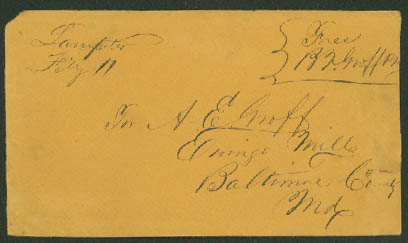 Lampeter
Feby 11
Free
B F. Groff PM
To A E Groff
Owings Mills
Baltimore County
Md